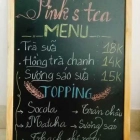 Pink's tea
MENU
Trà sữa 18K
Hồng trà chanh 14K
Sương sáo sữa 15K
TOPPING
Socola Trân châu
Matcha Sương sáo